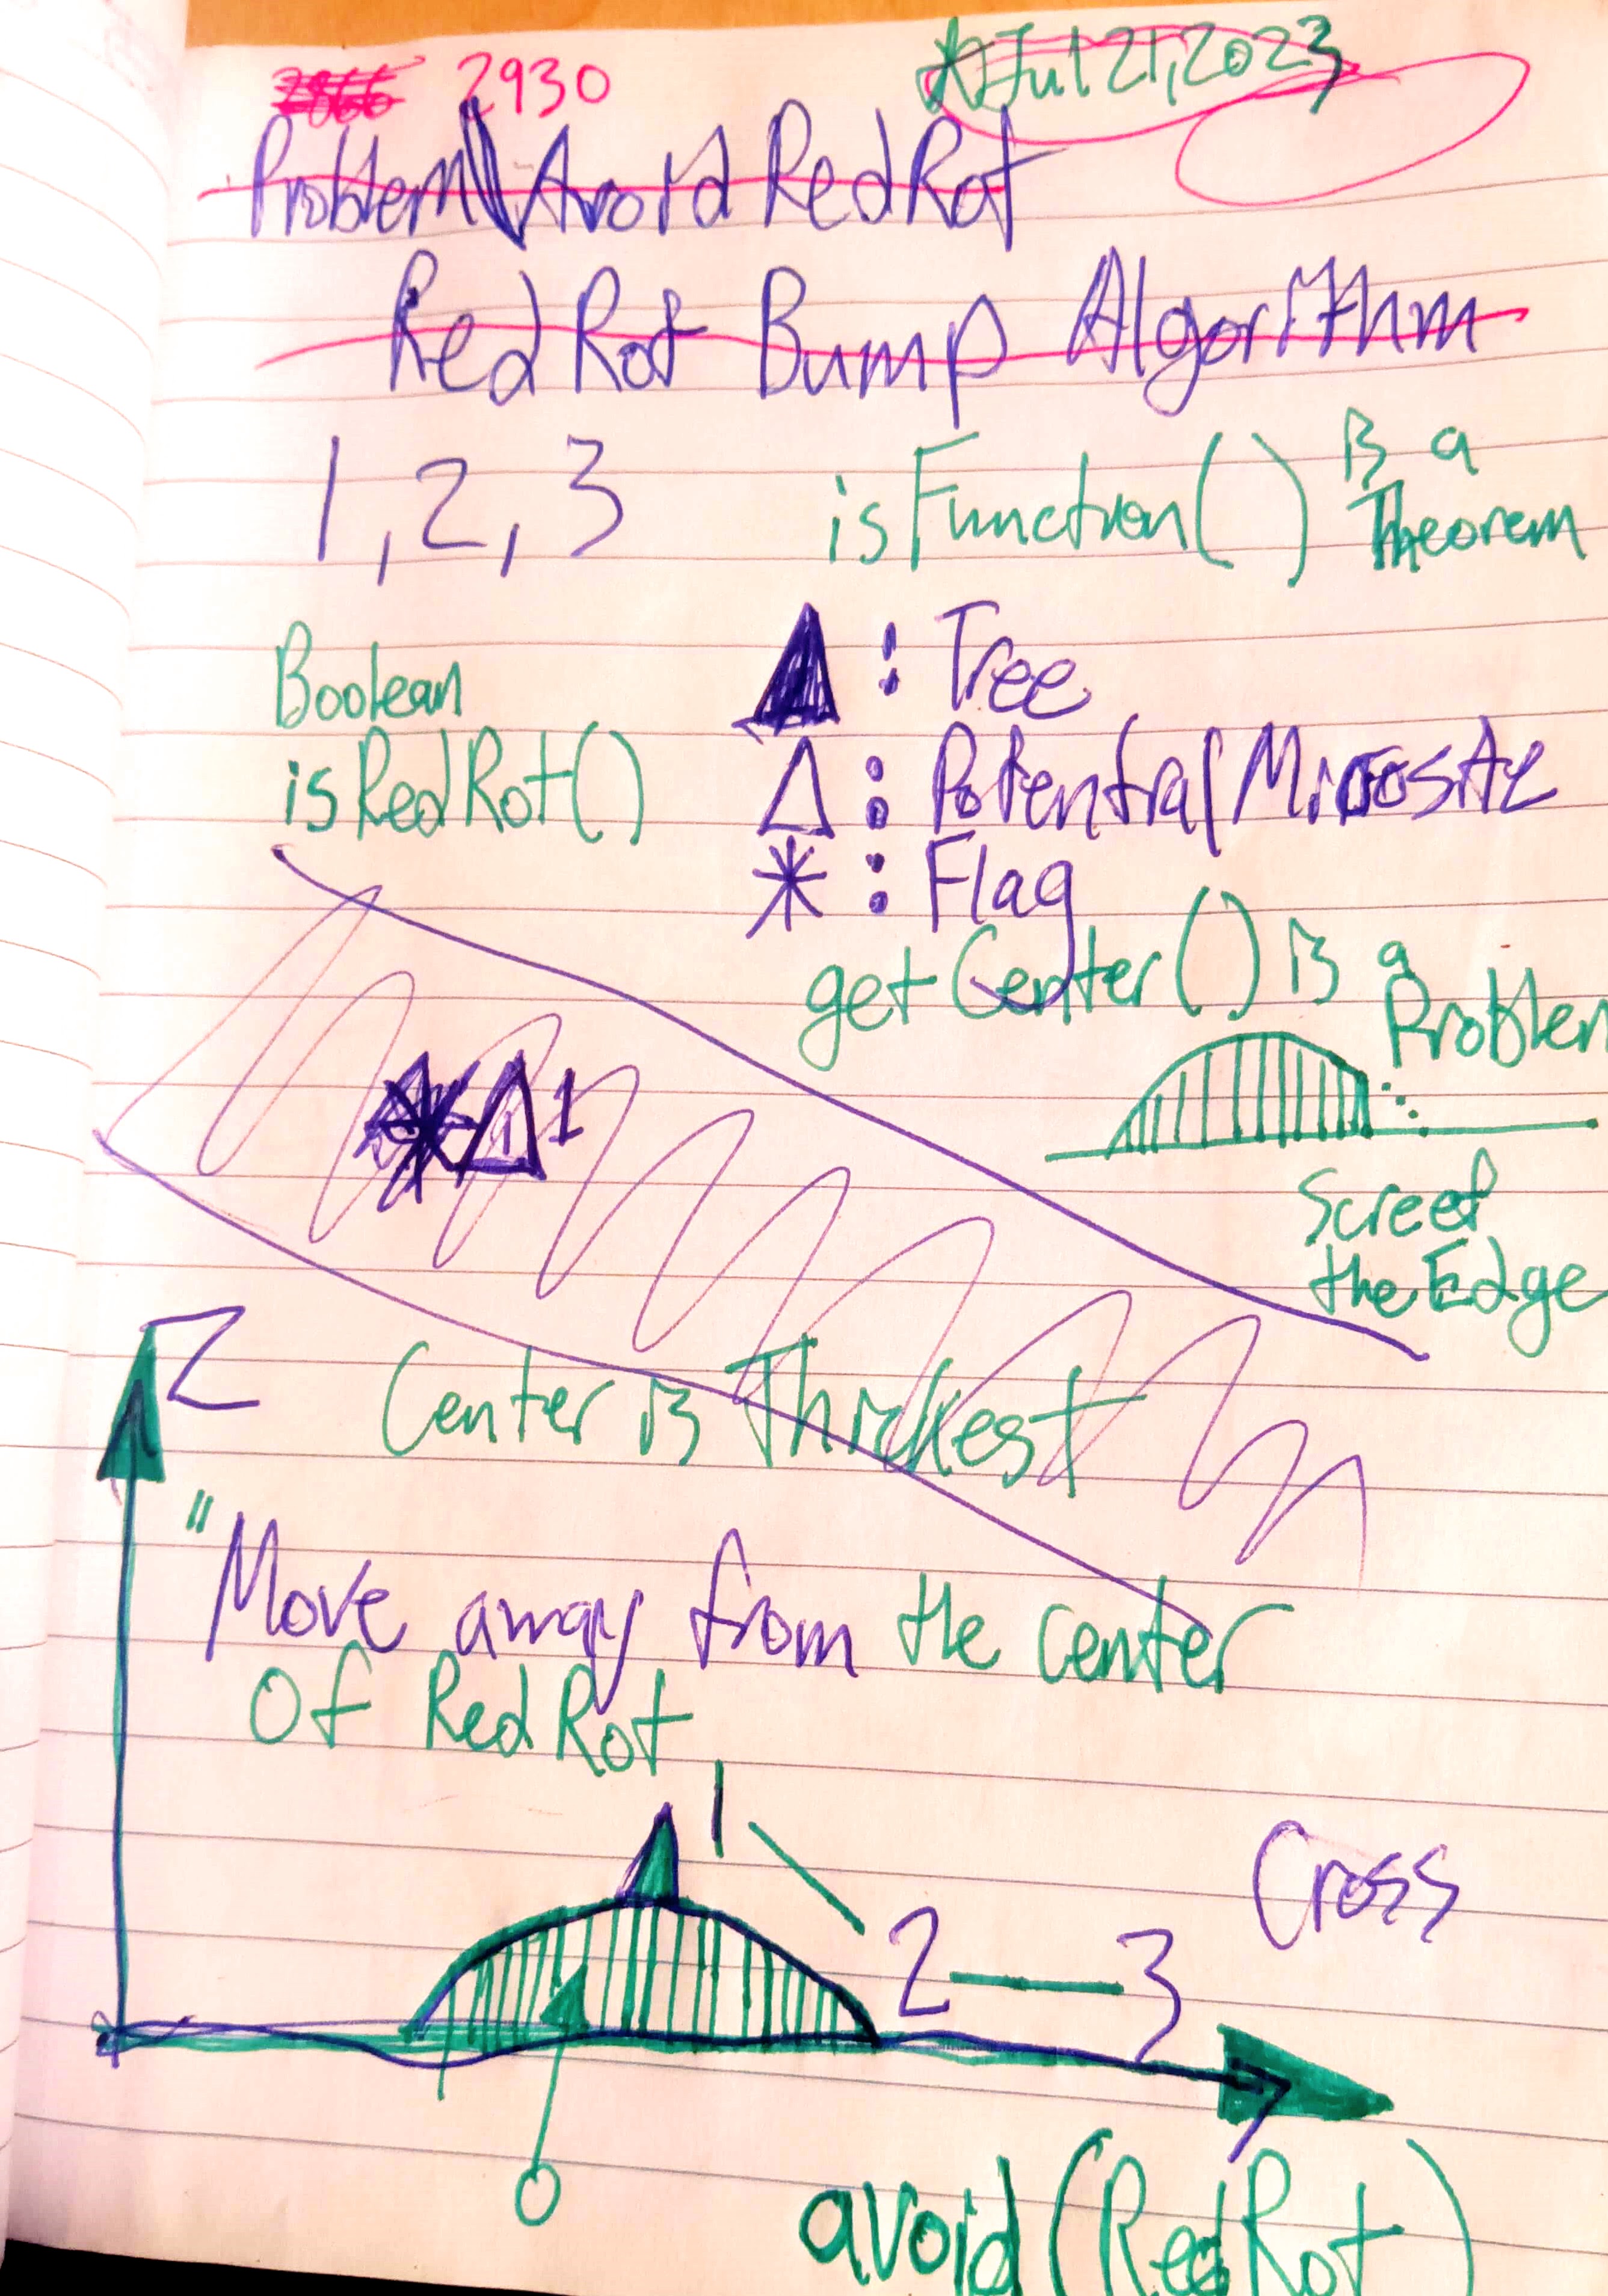 2866 2930
Jul 21, 2023
Problem Avoid Red Rot
Red Rot Bump Algorithm
1, 2, 3
isFunction() is a
Theorem
Boolean
isRedRot()
: Tree
: Potential Microsite
: Flag
getCenter() is a
Problem
Screef
the Edge
1
Z
Center is Thickest
"Move away from the center
Of Red Rot
1
2 3
Cross
0
avoid(RedRot)